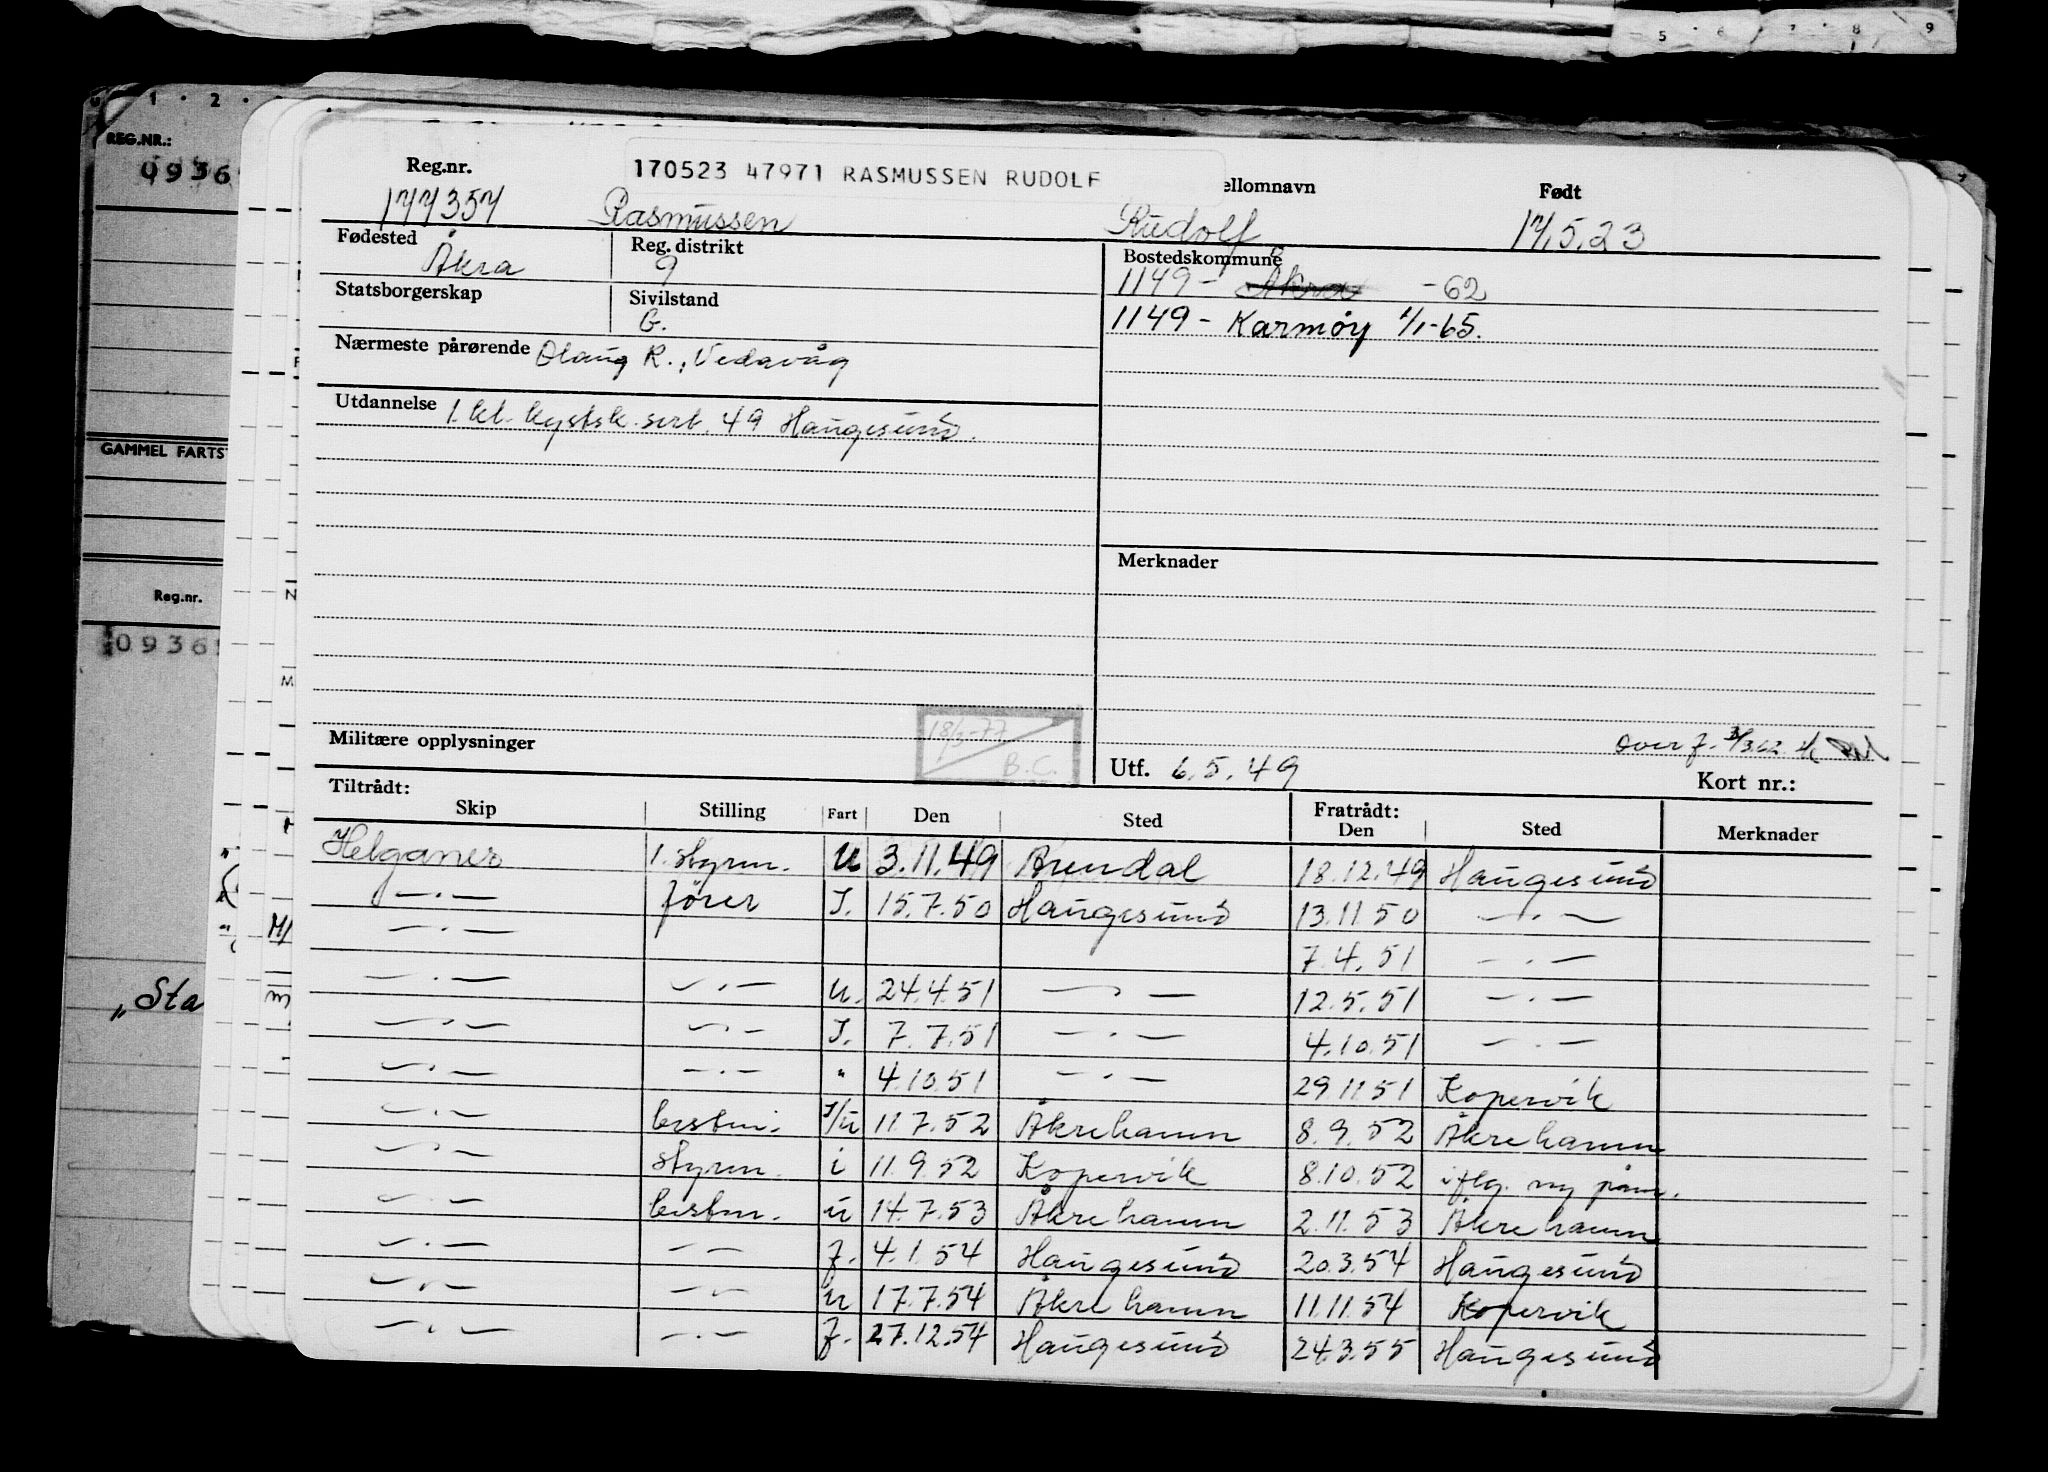 5 6 7 8 9
1 2
REG.NR.:
0936
GAMMEL FARTS
Reg.nr.
0936
„Sta
170523 47971 RASMUSSEN RUDOLF
Reg.nr. ellomnavn Født
177357 Rasmussen Rudolf 17.5.23
Fødested Åkra
Reg. distrikt 9
Bostedskommune
1149 - Åkra -62
1149 - Karmøy 1/1-65.
Statsborgerskap
Sivilstand G.
Nærmeste pårørende Olaug R., Vedavåg
Utdannelse 1. kl. kystsk. sert. 49 Haugesund.
Merknader
Militære opplysninger
18/3-77
B.C.
over f. 31/3.62
Utf. 6.5.49 Kort nr.:
Tiltrådt: Fratrådt:
Skip Stilling Fart Den Sted Den Sted Merknader
Helganes 1. styrm. U 3.11.49 Arendal 18.12.49 Haugesund
—·— fører I. 15.7.50 Haugesund 13.11.50 —·—
—·— 7.4.51 —·—
—·— —·— U. 24.4.51 —·— 12.5.51 —·—
—·— —·— I. 7.7.51 —·— 4.10.51 —·—
—·— —·— " 4.10.51 —·— 29.11.51 Kopervik
—·— bestm. I/U 11.7.52 Åkrehamn 8.9.52 Åkrehamn
—·— styrm. i 11.9.52 Kopervik 8.10.52 iflg. ny påm.
—·— bestm. u 14.7.53 Åkrehamn 2.11.53 Åkrehamn
—·— — — f. 4.1.54 Haugesund 20.3.54 Haugesund
—·— —·— u 17.7.54 Åkrehamn 11.11.54 Kopervik
—·— —·— f. 27.12.54 Haugesund 24.3.55 Haugesund